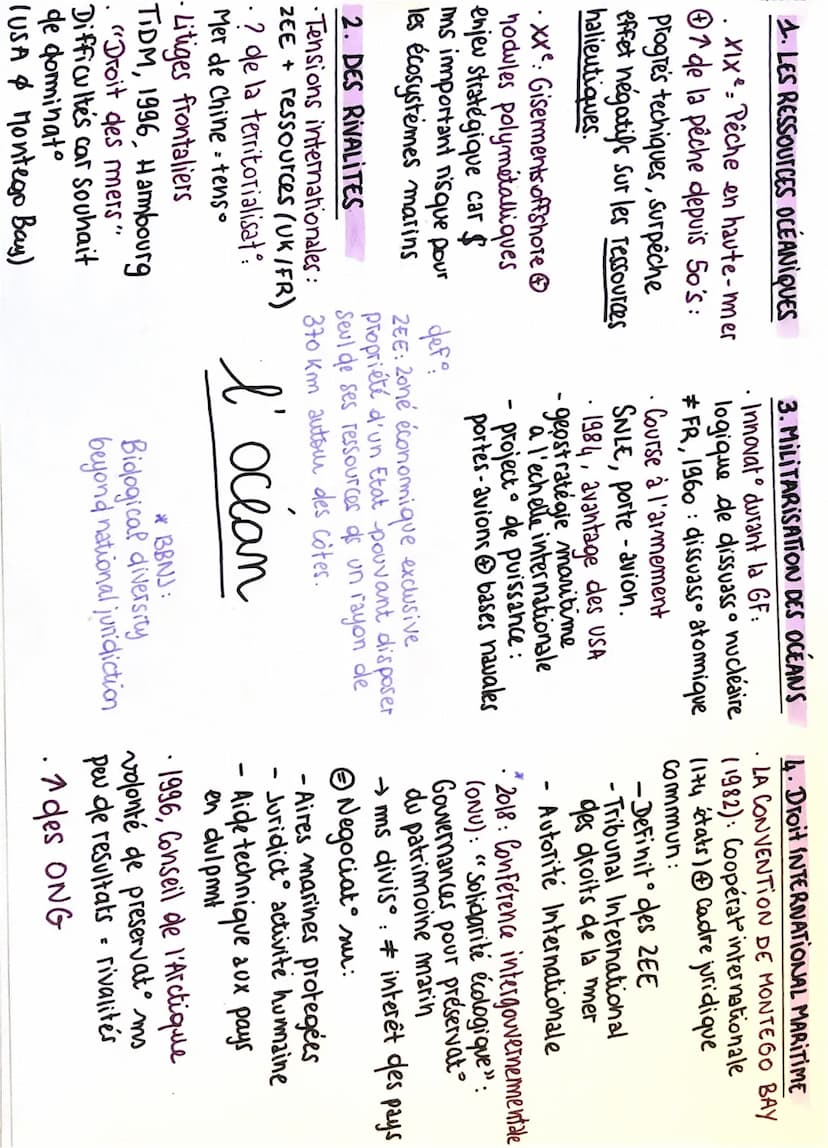 1. LES RESSOURCES OCÉANIQUES
. XIXe = Pêche en haute-mer
⊕ ↑ de la pêche depuis 50's :
progrès techiques, surpêche
effet négatifs sur les ressources
halieutiques.
. XXe : Gisements offshore ⊕
nodules polymétalliques
enjeu stratégique car $
ms important risque pour
les écosystèmes marins
2. DES RIVALITES
. Tensions internationales :
ZEE + ressources (UK/FR)
. ? de la territorialisat° :
Mer de Chine = tens°
. Litiges frontaliers
TiDM, 1996, Hambourg
. "Droit des mers"
Difficultés car souhait
de dominat°
(USA ∉ Montego Bay)
def° :
ZEE : zone économique exclusive
propriété d'un Etat pouvant disposer
seul de ses ressources ds un rayon de
370 km autour des côtes.
l'océan
* BBNJ :
Biological diversity
beyond national juridiction
3. MILITARISATION DES OCÉANS
. Innovat° durant la GF :
logique de dissuas° nucléaire
≠ FR, 1960 : dissuas° atomique
. Course à l'armement
SNLE, porte-avion.
. 1984, avantage des USA
- géostratégie maritime
à l'echelle internationale
- project° de puissance :
portes-avions ⊕ bases navales
4. Droit INTERNATIONAL MARITIME
. LA CONVENTION DE MONTEGO BAY
(1982) : Coopérat° internationale
(174 états) ⊕ Cadre juridique
commun :
- Definit° des ZEE
- Tribunal International
des droits de la mer
- Autorité Internationale
* . 2018 : Conférence intergouvernementale
(ONU) : "Solidarité écologique" :
Gouvernances pour préservat°
du patrimoine marin
→ ms divis° : ≠ interêt des pays
⊜ Negociat° sur :
- Aires marines protegées
- Juridict° activité humaine
- Aide technique aux pays
en dvlpmt
. 1996, Conseil de l'Arctique
volonté de preservat° ms
peu de resultats = rivalités
. ↑ des ONG